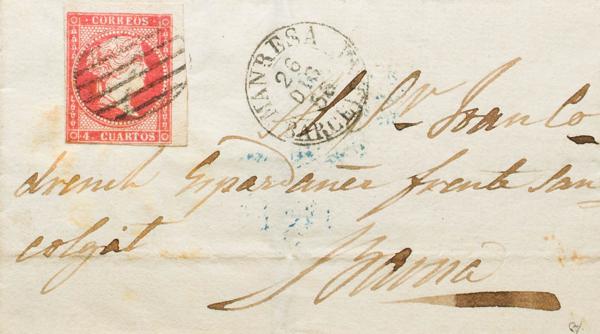 CORREOS
4. CUARTOS
MANRESA
26
DIC
BARCEL
Sr Dn Juan Co
drench Espardañer frente san
colgat